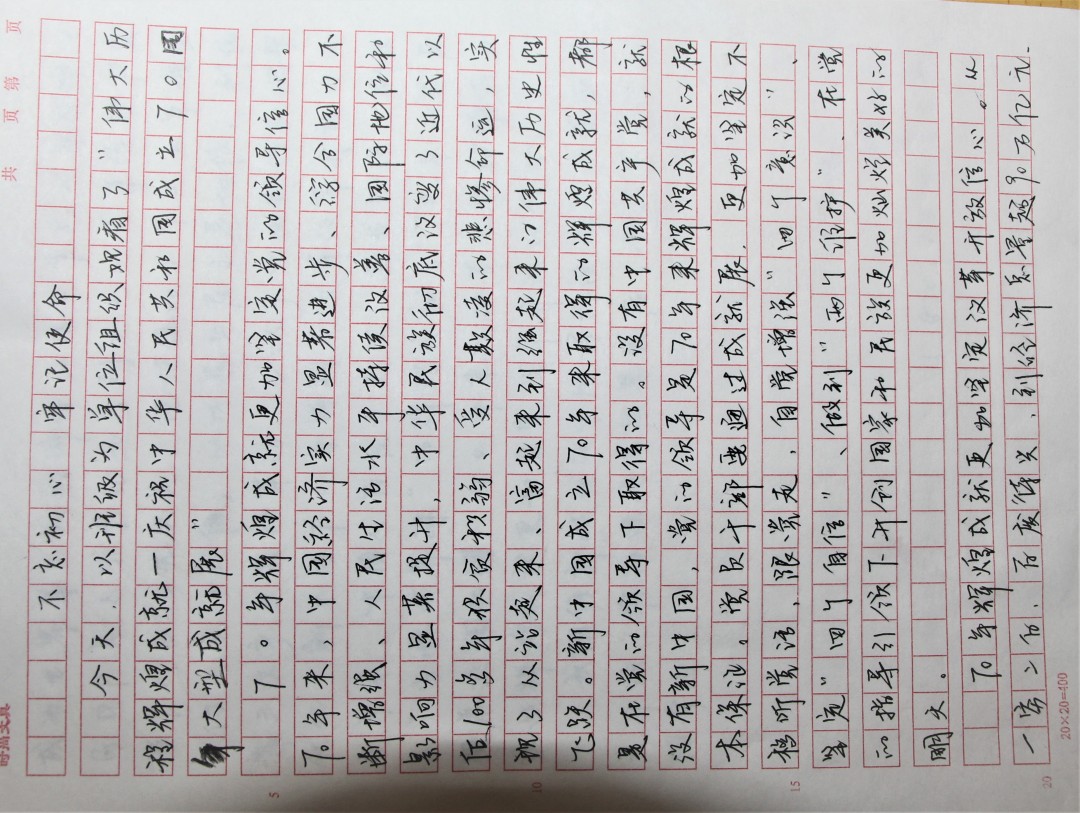 共 页 第 页
不忘初心 牢记使命
今天,以班级为单位组织观看了"伟大历
程辉煌成就一庆祝中华人民共和国成立70周
年大型成就展"
70年辉煌成就更加坚定党的领导信心。
70年来,中国经济实力显著进步、综合国力不
断增强、人民生活水平持续改善、国际地位和
影响力显著提升,中华民族彻底改变了近代以
后100多年积贫积弱、受人欺凌的悲惨命运,实
现了从站起来、富起来到强起来的伟大历史性
飞跃。新中国成立70年来取得的辉煌成就,都
是在党的领导下取得的。没有中国共产党,就
没有新中国,党的领导是70年来辉煌成就的根
本保证。党员干部要通过成就展,更加坚定不
移听党话,跟党走,自觉增强"四个意识"、
坚定"四个自信"、做到"两个维护",在党
的指导引领下开创国家和民族更加灿烂美好的
明天。
70年辉煌成就更加坚定改革开放信心。从
一穷二白,百废待兴,到经济总量超90万亿元.
5
10
15
20
20×20=400